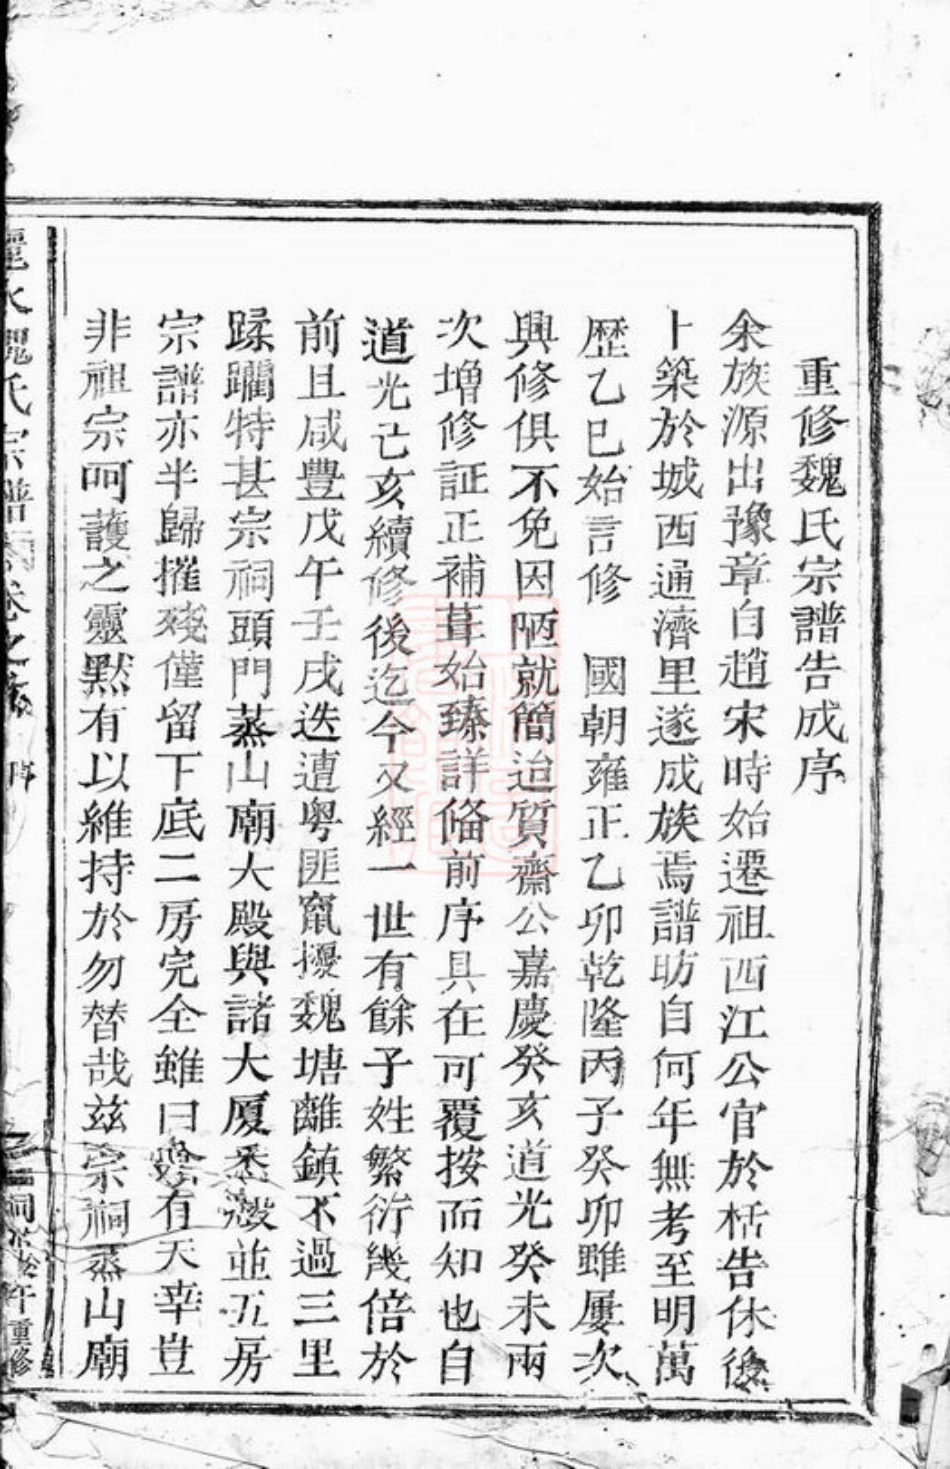 重修魏氏宗譜告成序
余族源出豫章自趙宋時始遷祖西江公官於栝告休後
卜築於城西通濟里遂成族焉譜昉自何年無考至明萬
歷乙巳始言修　國朝雍正乙卯乾隆丙子癸卯雖屢次
興修俱不免因陋就簡迨質齋公嘉慶癸亥道光癸未兩
次增修証正補葺始臻詳備前序具在可覆按而知也自
道光己亥續修後迄今又經一世有餘子姓繁衍幾倍於
前且咸豐戊午壬戌迭遭粤匪竄擾魏塘離鎮不過三里
蹂躪特甚宗祠頭門蒸山廟大殿與諸大厦悉燬並五房
宗譜亦半歸摧殘僅留下底二房完全雖曰有天幸豈
非祖宗呵護之靈默有以維持於勿替哉茲宗祠蒸山廟
麗水魏氏宗譜 卷之 序
祠 午重修